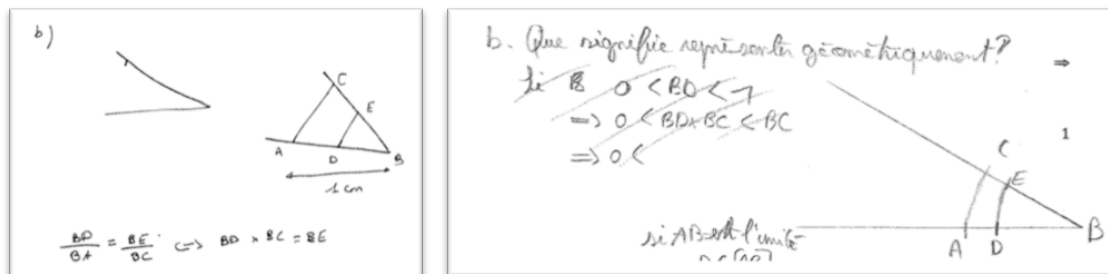 b)
C
E
A
D
B
1 cm
BD/BA = BE/BC <=> BD × BC = BE
b. Que signifie représenter géométriquement? ⇒
Si B 0 < BD < 1
=> 0 < BD × BC < BC
=> 0 <
1
C
E
B
si AB est l'unité
A D